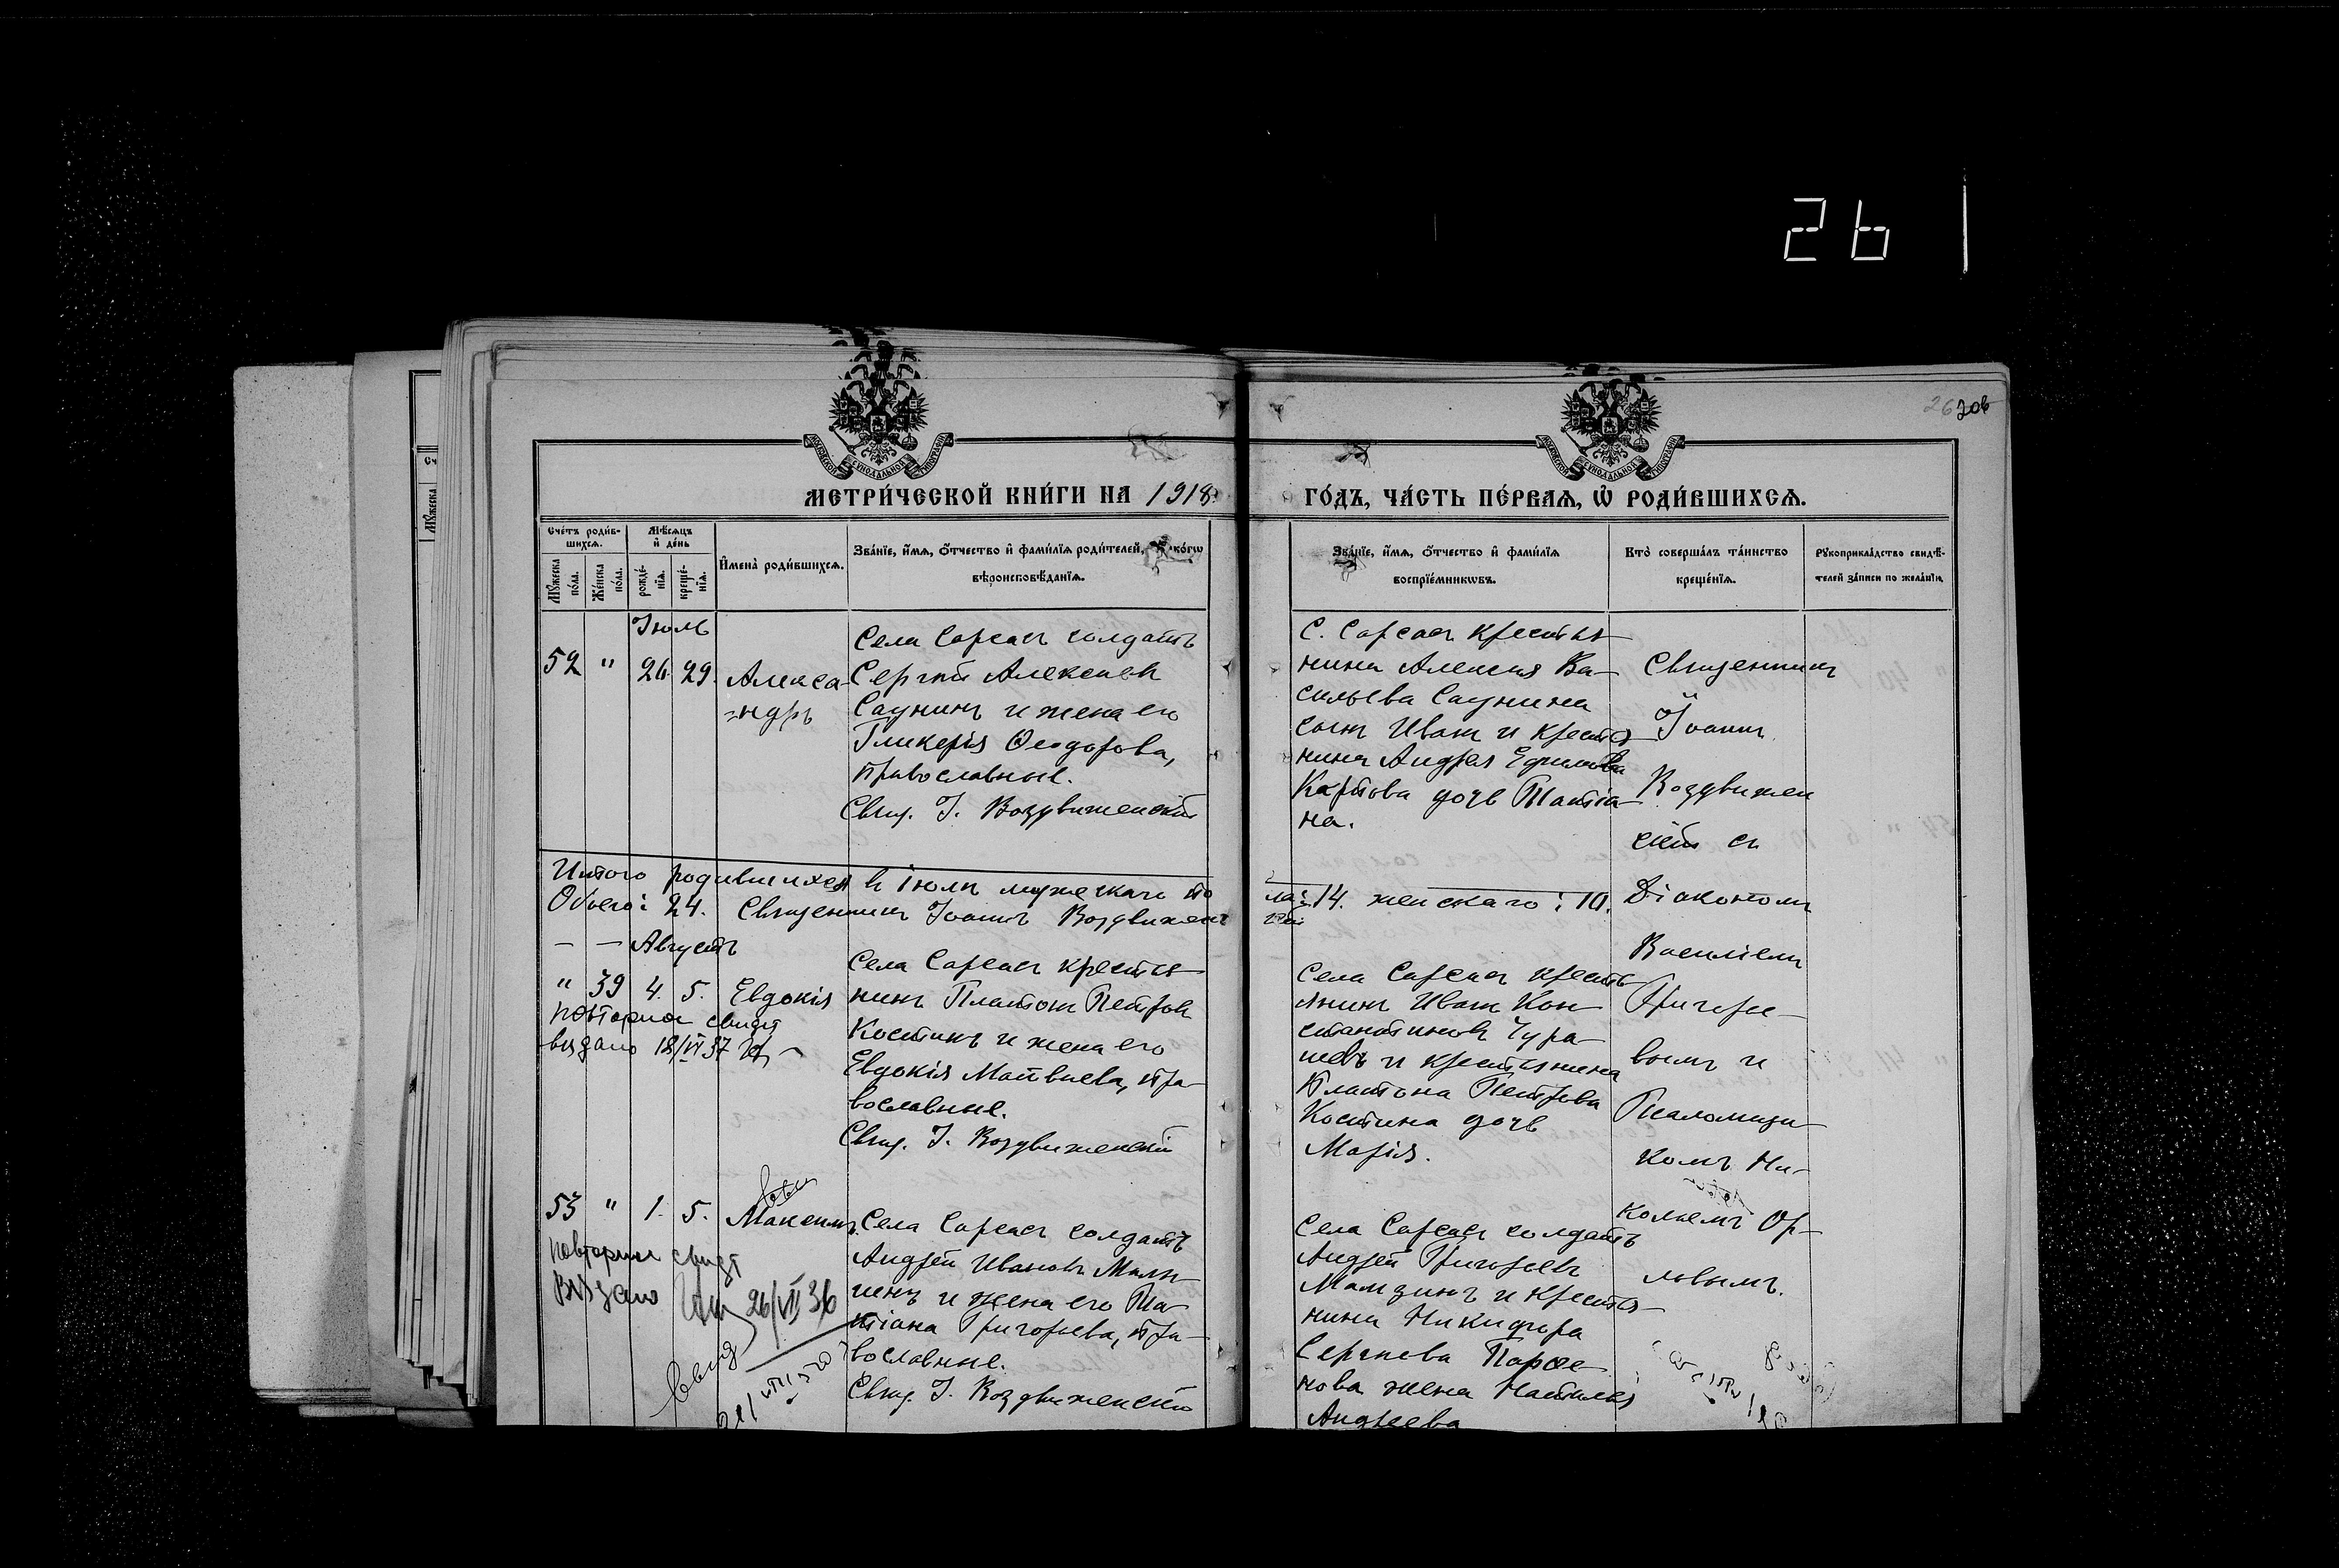 26
26 206
МЕТРИ́ЧЕСКОЙ КНИ́ГИ НА 1918
ГО́ДЪ, ЧА́СТЬ ПЕ́РВАЯ, Ѡ РОДИ́ВШИХСЯ.
Сче́тъ роди́в-
шихся.
Мѣ́сяцъ
и де́нь
Му́жеска
по́ла.
Же́нска
по́ла.
рожде́-
нїя.
креще́-
нїя.
Имена̀ роди́вшихся.
Зва́нїе, и́мя, о́тчество и фами́лїя роди́телей, и ко́гѡ
вѣроисповѣ́данїя.
Зва́нїе, и́мя, о́тчество и фами́лїя
воспрїе́мникѡвъ.
Кто̀ соверша́лъ та́инство
креще́нїя.
Рукоприкла́дство свидѣ́-
телей за́писи по жела́нїю.
Іюль
52 " 26. 29. Алекса-
=ндръ
Села Сарсасъ солдатъ
Сергѣй Алексѣевъ
Саунинъ и жена его
Гликерія Ѳеодорова,
православные.
Свящ. І. Воздвиженскій
С. Сарсасъ крестья-
нина Алексѣя Ва-
сильева Саунина
сынъ Иванъ и крестья-
нина Андрея Ефимова
Карпова дочь Татіа-
на.
Священникъ
Іоаннъ
Воздвижен
скій съ
Діакономъ
Василіемъ
Григорье-
вымъ и
Псаломщи-
комъ Ни-
колаемъ Ор-
ловымъ.
Итого родившихся въ іюлѣ мужескаго по
ла: 14. женскаго: 10.
Обоего: 24. Священникъ Іоаннъ Воздвиженс
кій
— — Августъ
" 39 4. 5. Евдокія
Повторное свидт
выдано 18/VI 37
Села Сарсасъ крестья-
нинъ Платонъ Петровъ
Костинъ и жена его
Евдокія Матвѣева, пра-
вославные.
Свящ. І. Воздвиженскій
Села Сарсасъ кресть-
янинъ Иванъ Кон-
стантиновъ Чура-
шевъ и крестьянина
Платона Петрова
Костина дочь
Марія.
53 " 1. 5. Максимъ
Повторное свидт
Выдано 26/VII 36
Села Сарсасъ солдатъ
Андрей Ивановъ
и жена его Та-
тіана Григорьева, пра-
вославные.
Свящ. І. Воздвиженскій
Села Сарсасъ солдатъ
Андрей Григорьевъ
Мамзинъ и крестья-
нина Никифора
Сергѣева Парѳе-
нова жена Наталія
Андреева